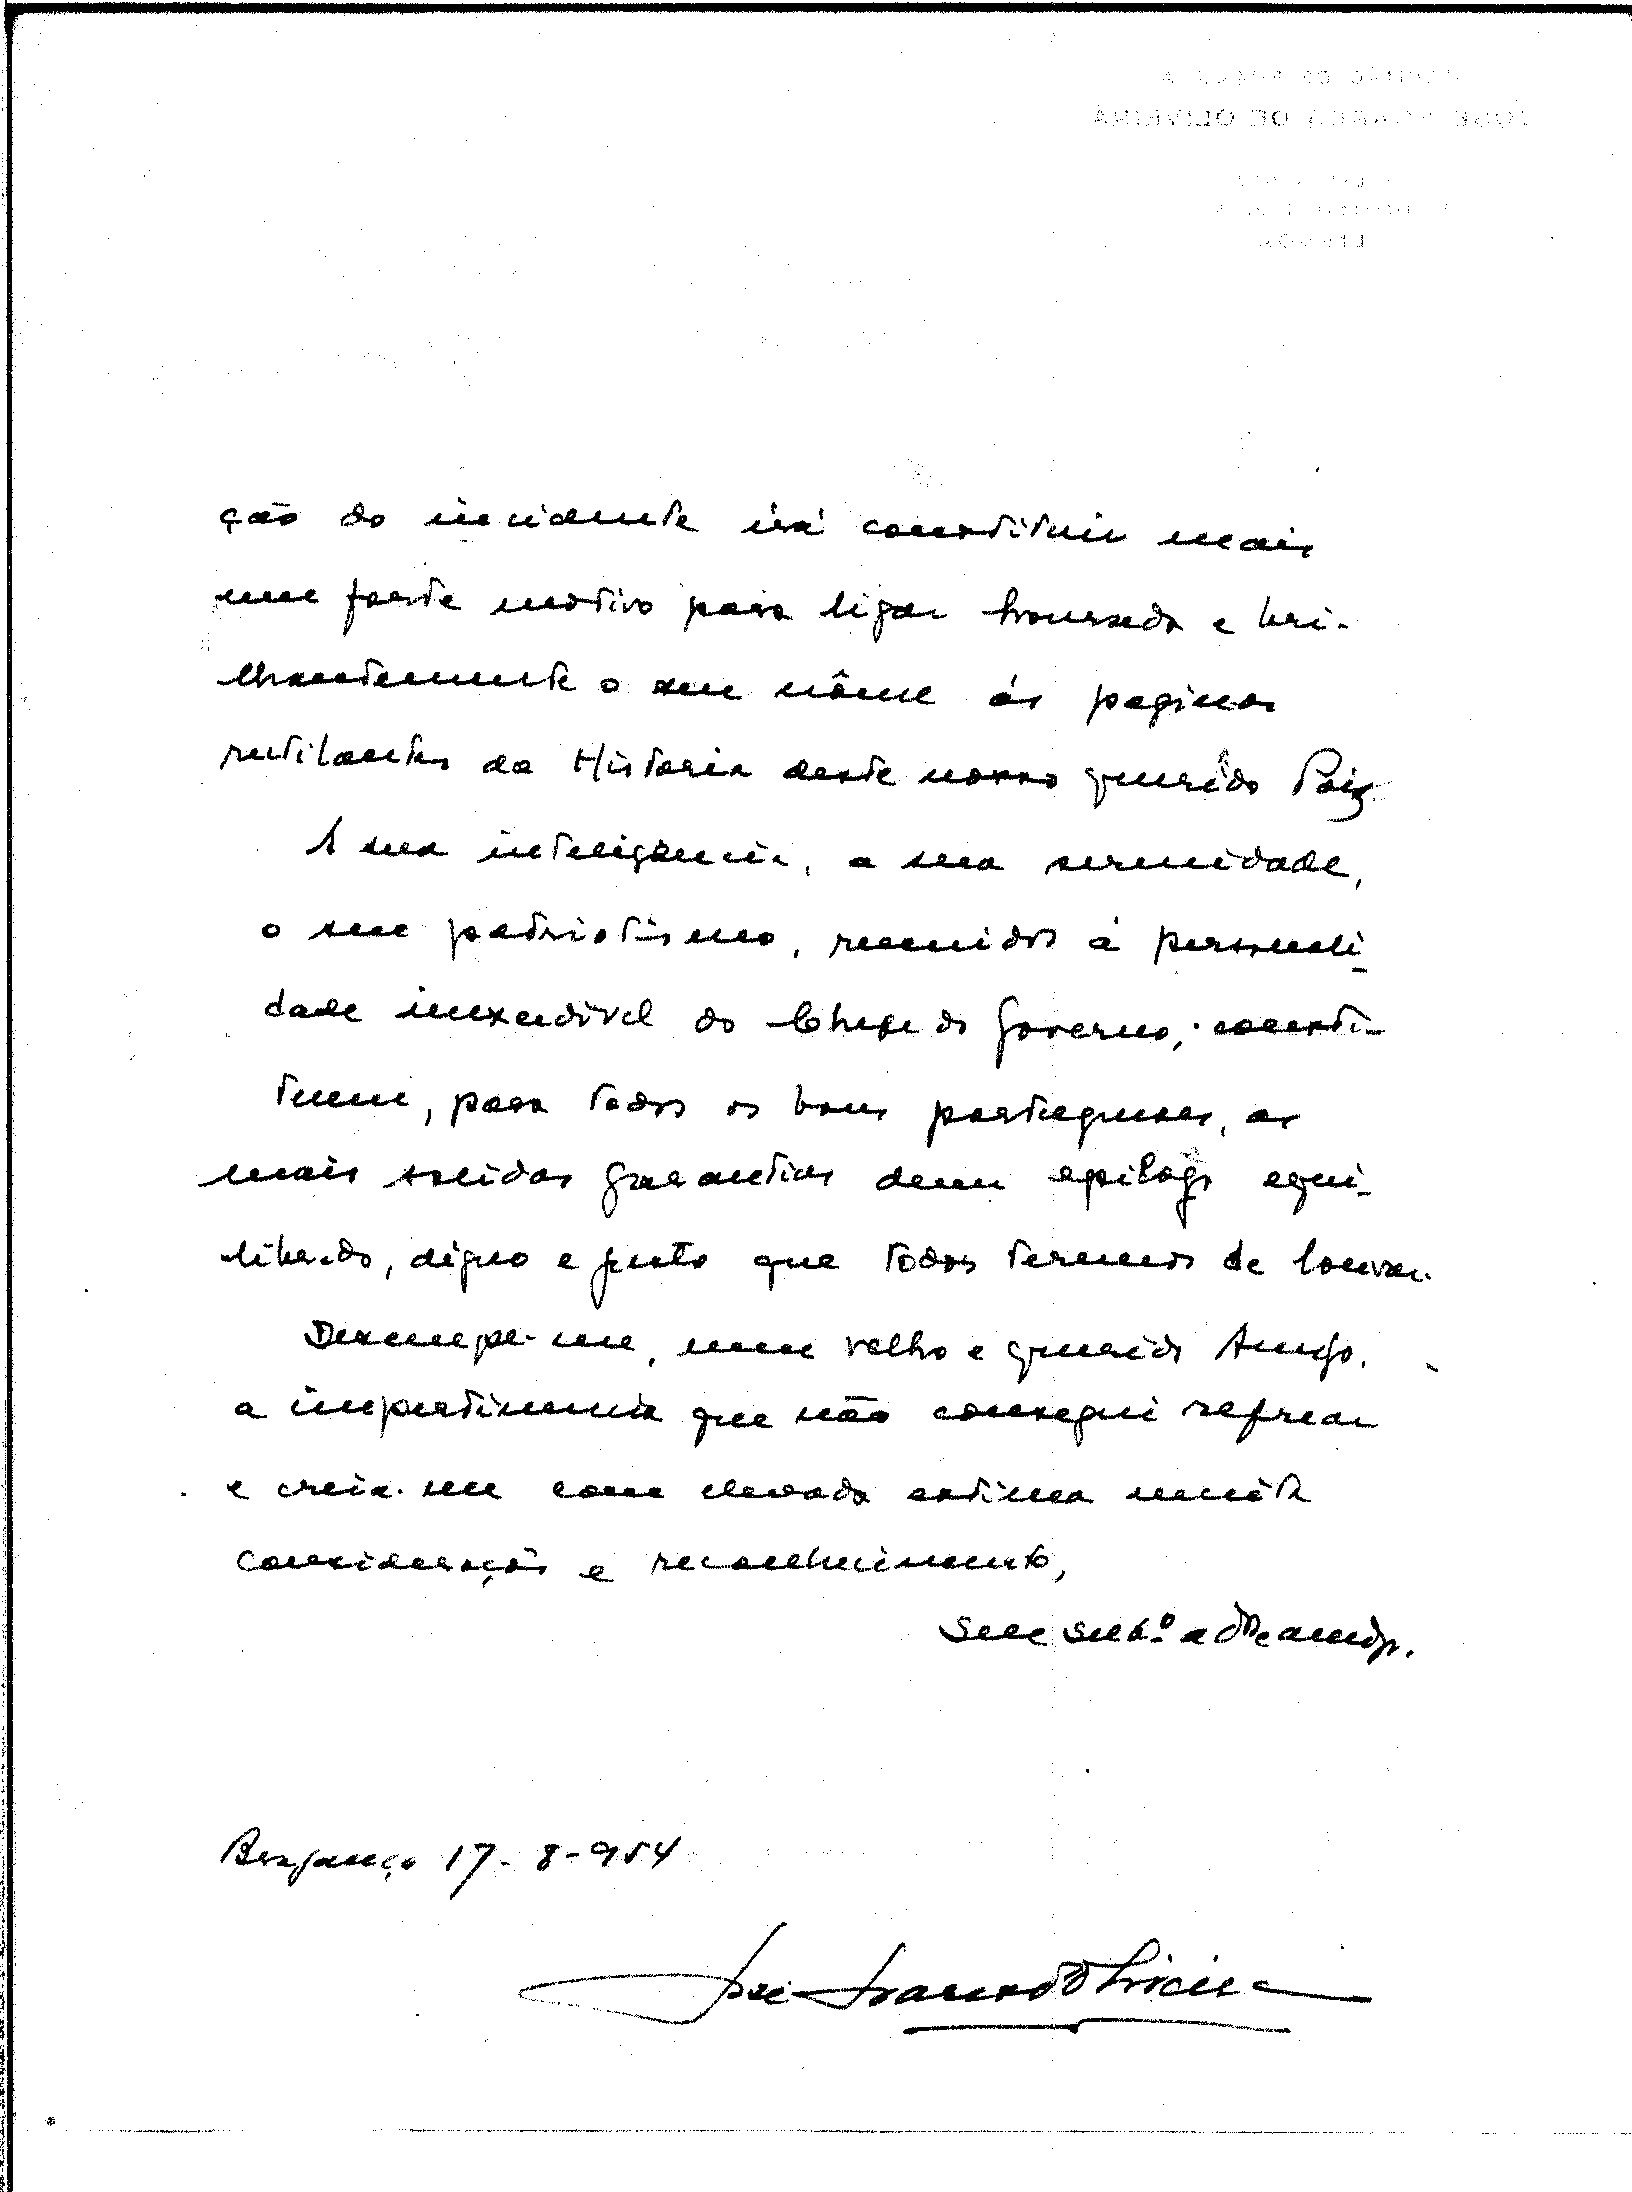 JOSÉ DE OLIVEIRA
LISBOA
ção do incidente irá constituir mais
um forte motivo para ligar honrada e bri-
lhantemente o seu nôme ás paginas
rutilantes da Historia deste nosso querido Paiz
A sua inteligência, a sua serenidade,
o seu patriotismo, reunidos á personali-
dade inexcedivel do Chefe do Governo, consti-
tuem, para todos os bons portugueses, as
mais solidas garantias dum epilogo equi-
librado, digno e justo que todos teremos de louvar.
Desculpe-me, meu velho e querido Amigo,
a impertinencia que não consegui refrear
e creia-me com elevada estima muita
consideração e reconhecimento,
Seu sub.º e amigo.
Bragança 17-8-954
José